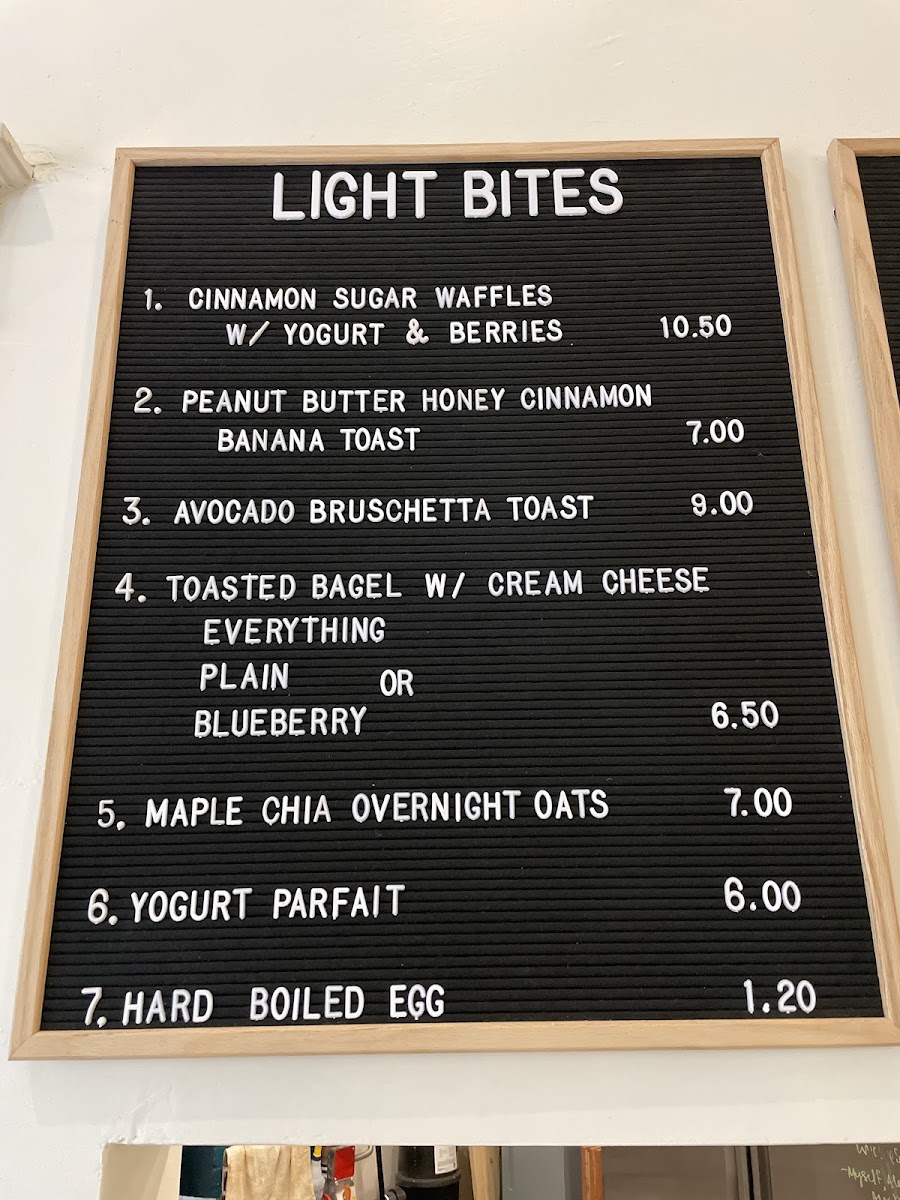 LIGHT BITES
1. CINNAMON SUGAR WAFFLES
W/ YOGURT & BERRIES 10.50
2. PEANUT BUTTER HONEY CINNAMON
BANANA TOAST 7.00
3. AVOCADO BRUSCHETTA TOAST 9.00
4. TOASTED BAGEL W/ CREAM CHEESE
EVERYTHING
PLAIN OR
BLUEBERRY 6.50
5. MAPLE CHIA OVERNIGHT OATS 7.00
6. YOGURT PARFAIT 6.00
7. HARD BOILED EGG 1.20